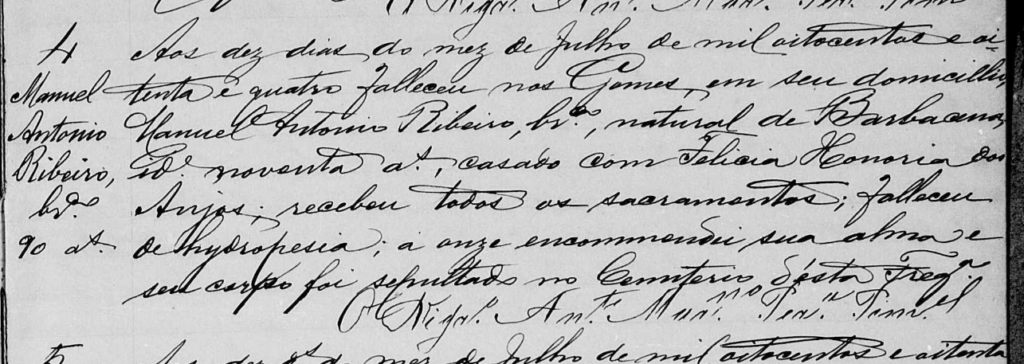 4
Manuel
Antonio
Ribeiro,
br.co
90 a.s
Aos dez dias do mez de Julho de mil oitocentos e oi-
tenta e quatro falleceu nos Gomes, em seu domicillio,
Manuel Antonio Ribeiro, br.co, natural de Barbacena,
id.e noventa a.s, casado com Felicia Honoria dos
Anjos; recebeu todos os sacramentos; falleceu
de hydropesia; a onze encommendei sua alma e
seu corpo foi sepultado no Cemiterio desta Freg.a
O Vigr.o Ant.o
5
de mez de Julho de mil oitocentos e oitenta